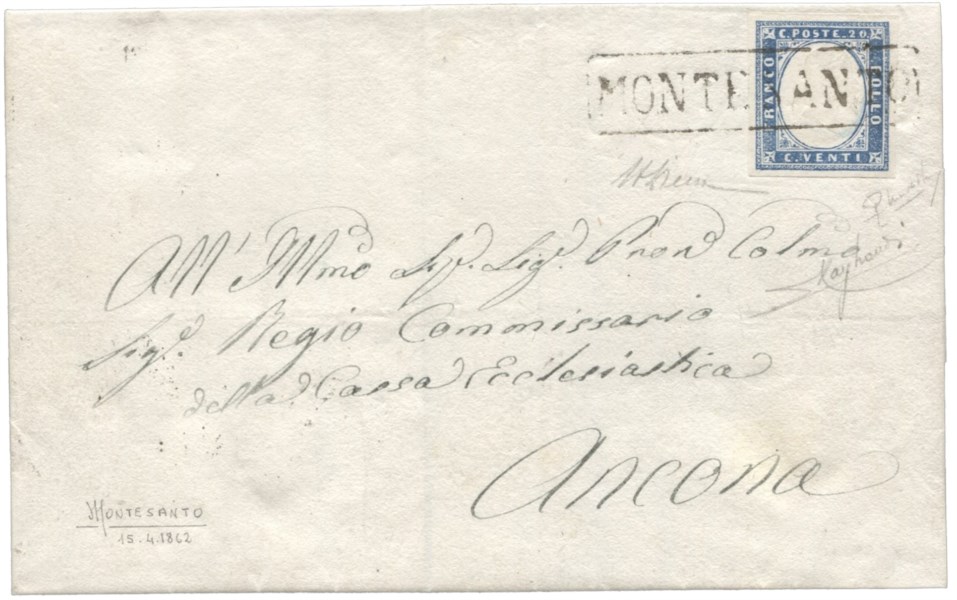 C. POSTE. 20.
FRANCO
BOLLO
C. VENTI
MONTESANTO
All' Illmo Sig. Sig. Pron Colmo
Sig. Regio Commissario
della Cassa Ecclesiastica
Ancona
MONTESANTO
15.4.1862